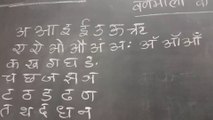 वर्णमाला
अ आ इ ई उ ऊ ऋ
ए ऐ ओ औ अं अः अँ आँ
क ख ग घ ङ
च छ ज झ ञ
ट ठ ड ढ ण
त थ द ध न